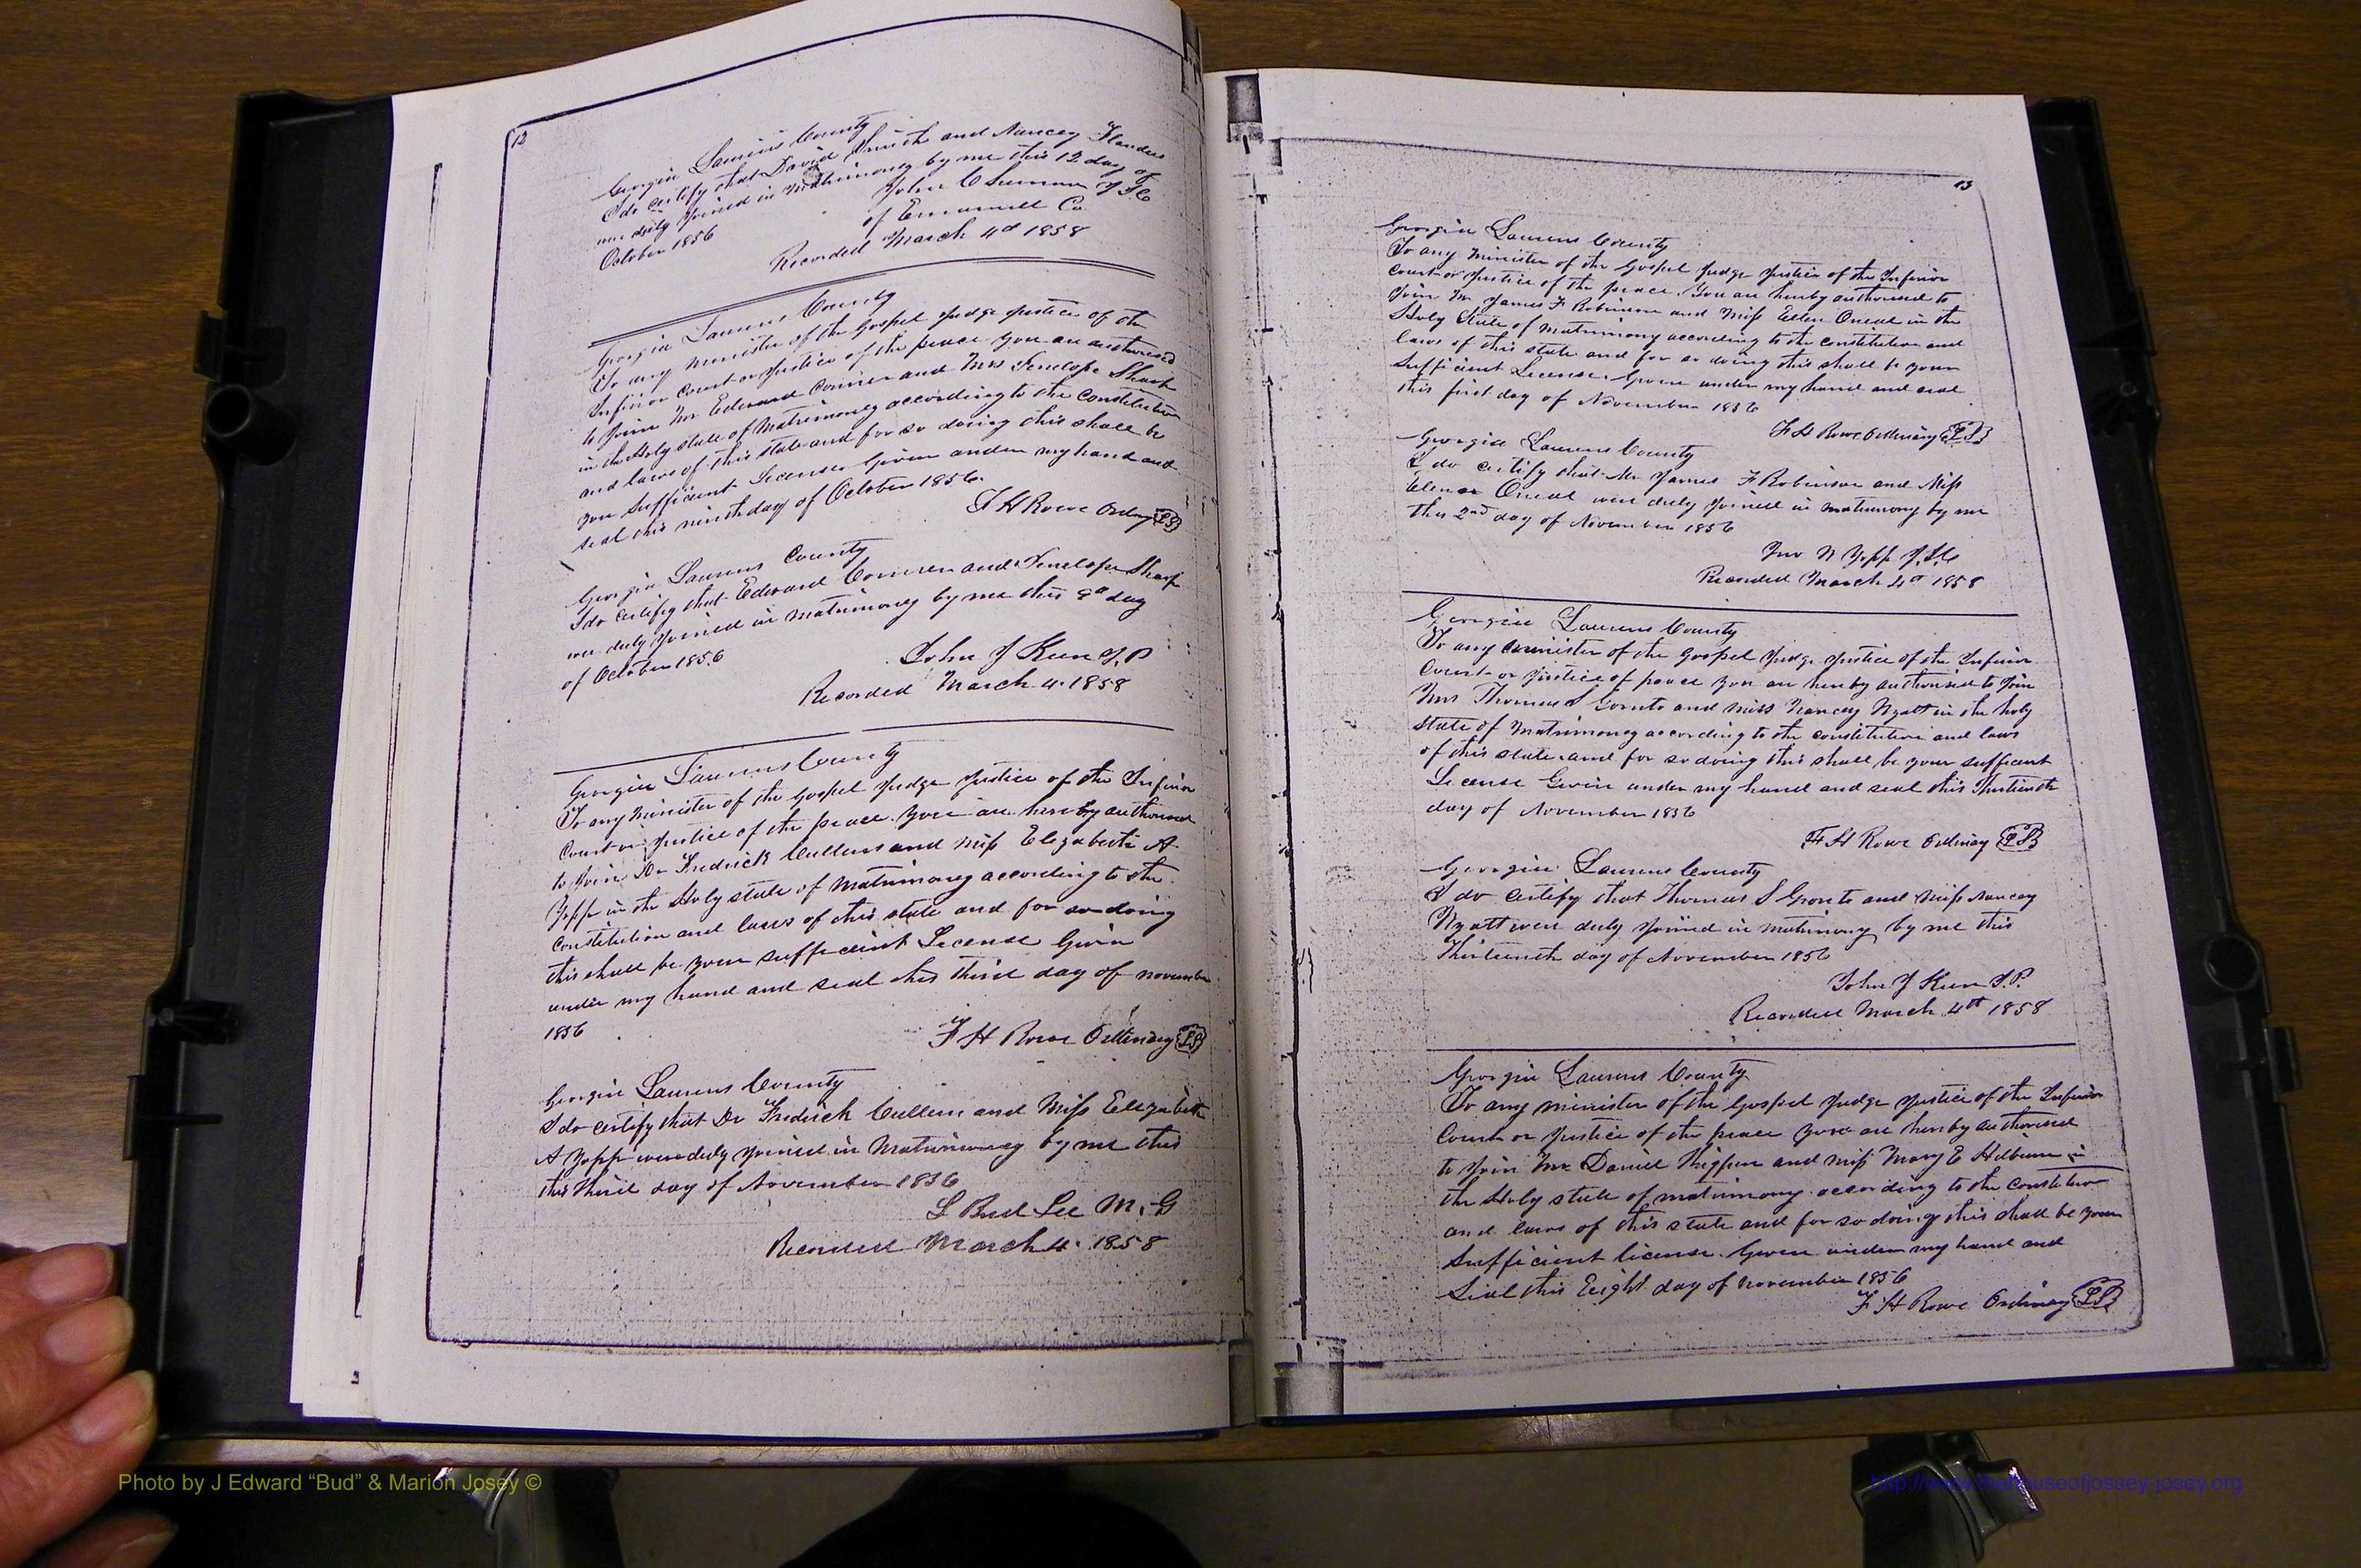 12
Georgia Laurens County
I do certify that David Smith and Nancey Flanders
was duly Joined in Matrimoney by me this 12 day of
October 1856 John C Sumner J I C
of Emanuell Co
Recorded March 4d 1858
Georgia Laurens County
To any minister of the Gospel Judge Justice of the
Inferior Court or Justice of the peace you an authorised
to Join Mr Edward Conner and Mrs Penelope Sharp
in the Holy state of Matrimoney according to the Constitution
and laws of this state and for so doing this shall be
you sufficient License Given under my hand and
seal this ninth day of October 1856.
F H Rowe Orday LS
Georgia Laurens County
I do certify that Edward Conner and Penelope Sharp
wer duly Joined in matrimoney by me this 9d day
of October 1856
John J Keen J.P
Recorded March 4. 1858
Georgia Laurens County
To any Minister of the Gospel Judge Justice of the Inferior
Court or Justice of the peace. you are hereby authorised
to Join Dr Fredrick Cullens and Miss Elizabeth A
Yopp in the Holy state of Matrimoney according to the
constitution and laws of this state and for so doing
this shall be your sufficient License Givin
under my hand and seal this third day of november
1856
F H Rowe Ordinary LS
Georgia Laurens County
I do certify that Dr Fredrick Cullens and Miss Elizabeth
A Yopp were duly Joined in Matrimoney by me this
this third day of November 1856
L Bud Lee M. G
Recorded March 4. 1858
13
Georgia Laurens County
To any Minister of the Gospel Judge Justice of the Inferior
Court or Justice of the peace. You an hereby authorised to
Join Mr James F Robinson and Miss Ellen Oneal in the
Holy State of Matrimony according to the constitution and
laws of this state and for so doing this shall be your
sufficient License. Given under my hand and seal
this first day of November 1856
F H Rowe Ordinary LS
Georgia Laurens County
I do certify that Mr James F Robinson and Miss
Oneal were duly Joined in matrimony by me
this 2nd day of November 1856
Jno N Yopp J.I.C
Recorded March 4d 1858
Georgia Laurens County
To any minister of the Gospel Judge Justice of the Inferior
Court or Justice of peace you an hereby authorised to Join
Mr Thomas S Gornto and miss Nancey Wyatt in the holy
State of Matrimoney according to the constitution and laws
of this state and for so doing this shall be your sufficent
License Givin under my hand and seal this Thirteenth
day of November 1856
F H Rowe Ordinay LS
Georgia Laurens County
I do certify that Thomas S Gronto and Miss Nancey
Wyatt were duly Joined in matrimony by me this
Thirteenth day of November 1856
John J Keen J.P.
Recorded March 4th 1858
Georgia Laurens County
To any minister of the Gospel Judge Justice of the Inferior
Court or Justice of the peace your are hereby authorised
to Join Mr Daniel Thigpen and miss Mary E Hilburn in
the Holy state of matrimony according to the constitution
and laws of this state and for so doing this shall be your
sufficient license. Given under my hand and
Seal this Eight day of November 1856
F H Rowe Ordinay LS
Photo by J Edward “Bud” & Marion Josey ©
http://www.thehouseofjossey-josey.org